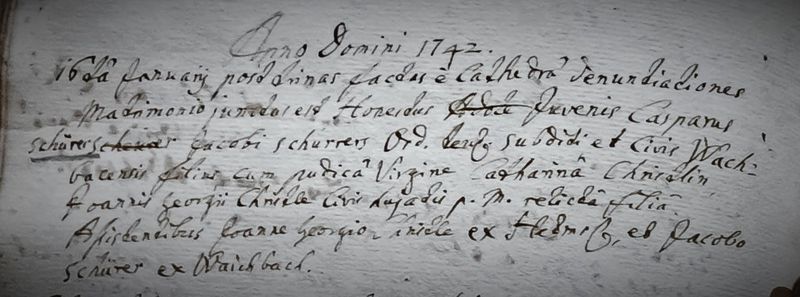 Anno Domini 1742.
16tâ Januarij post trinas factas è Cathedrâ denuntiationes
Matrimonio junctus est Honestus Juvenis Casparus
Schürer Jacobi Schurrers Ord. Teut: subditi et Civis Wach-
bacensis filius cum pudicâ Virgine Catharinâ Christlin
Joannis Georgii Christle Civis p. M. relictâ filiâ.
Assistentibus Joanne Georgio Christle ex et Jacobo
Schürer ex Waichbach.